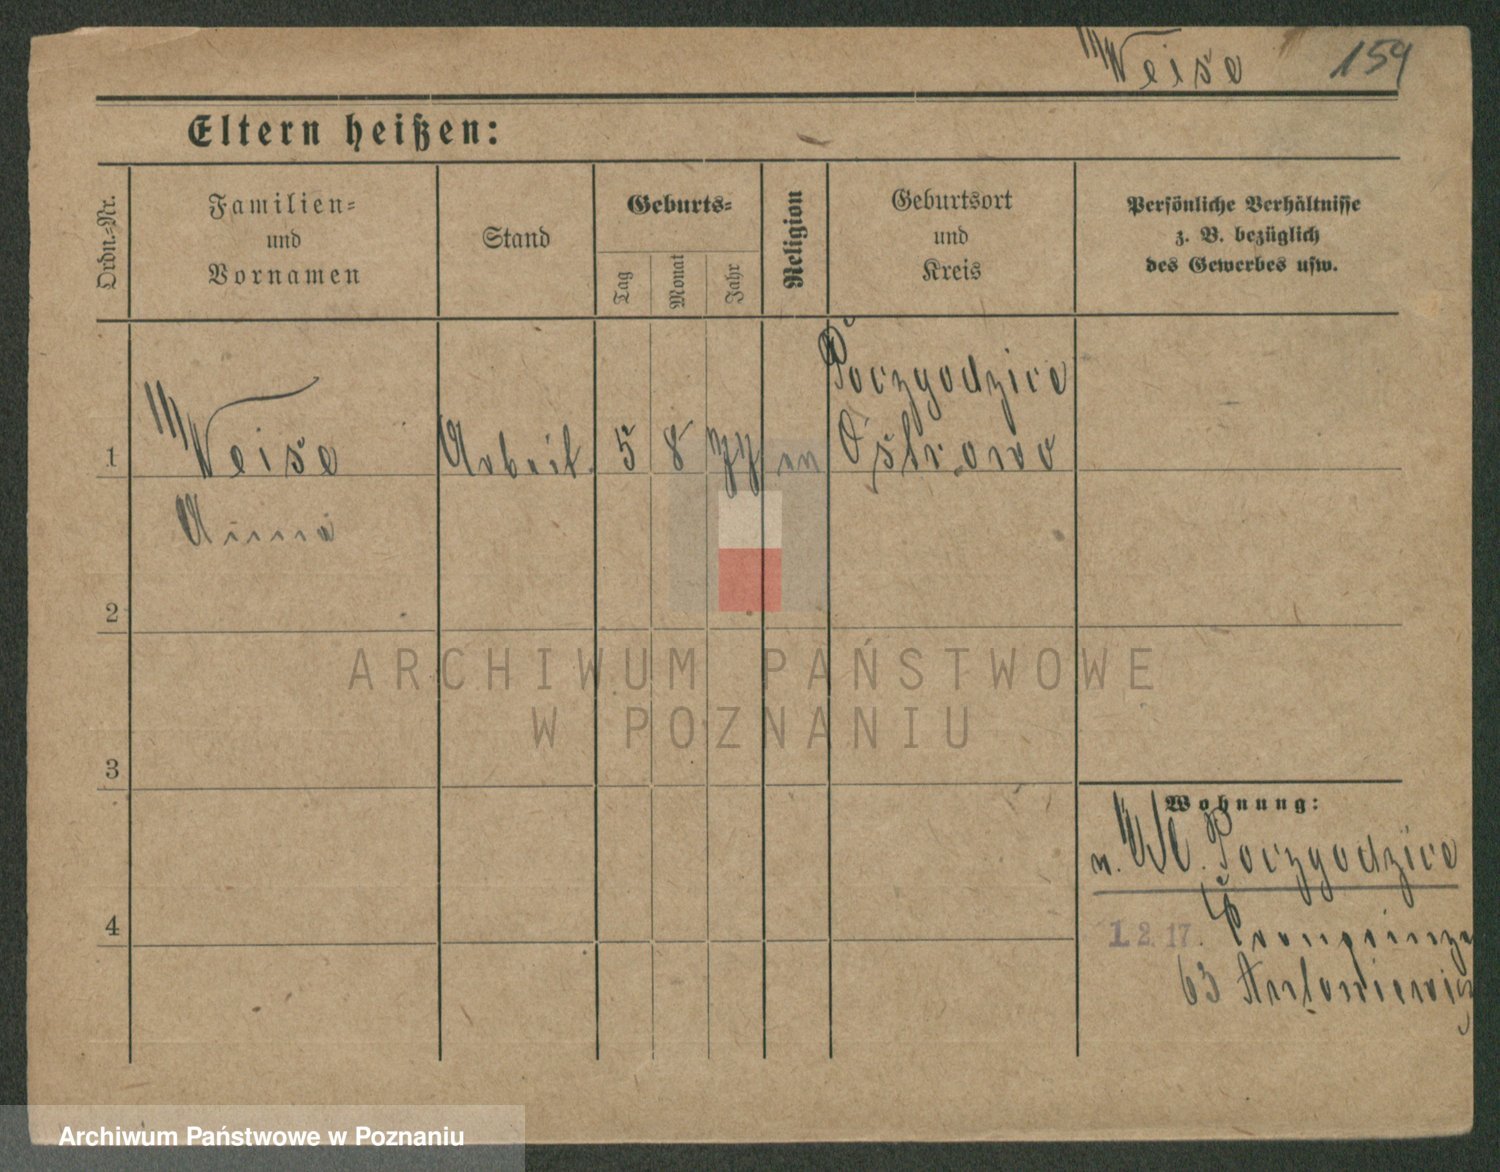 Weise 159
Eltern heißen:
Ordn.-Nr.
Familien-
und
Vornamen
Stand
Geburts-
Tag
Monat
Jahr
Religion
Geburtsort
und
Kreis
Persönliche Verhältnisse
z. B. bezüglich
des Gewerbes usw.
Poczygodzice
1 Weise Arbeit. 5 8 Ostrowo
Anna
2
3
4
ARCHIWUM PAŃSTWOWE
W POZNANIU
Wohnung:
n. Poczygodzice
1. 2. 17. Kronprinz
63 Antoniewicz
Archiwum Państwowe w Poznaniu